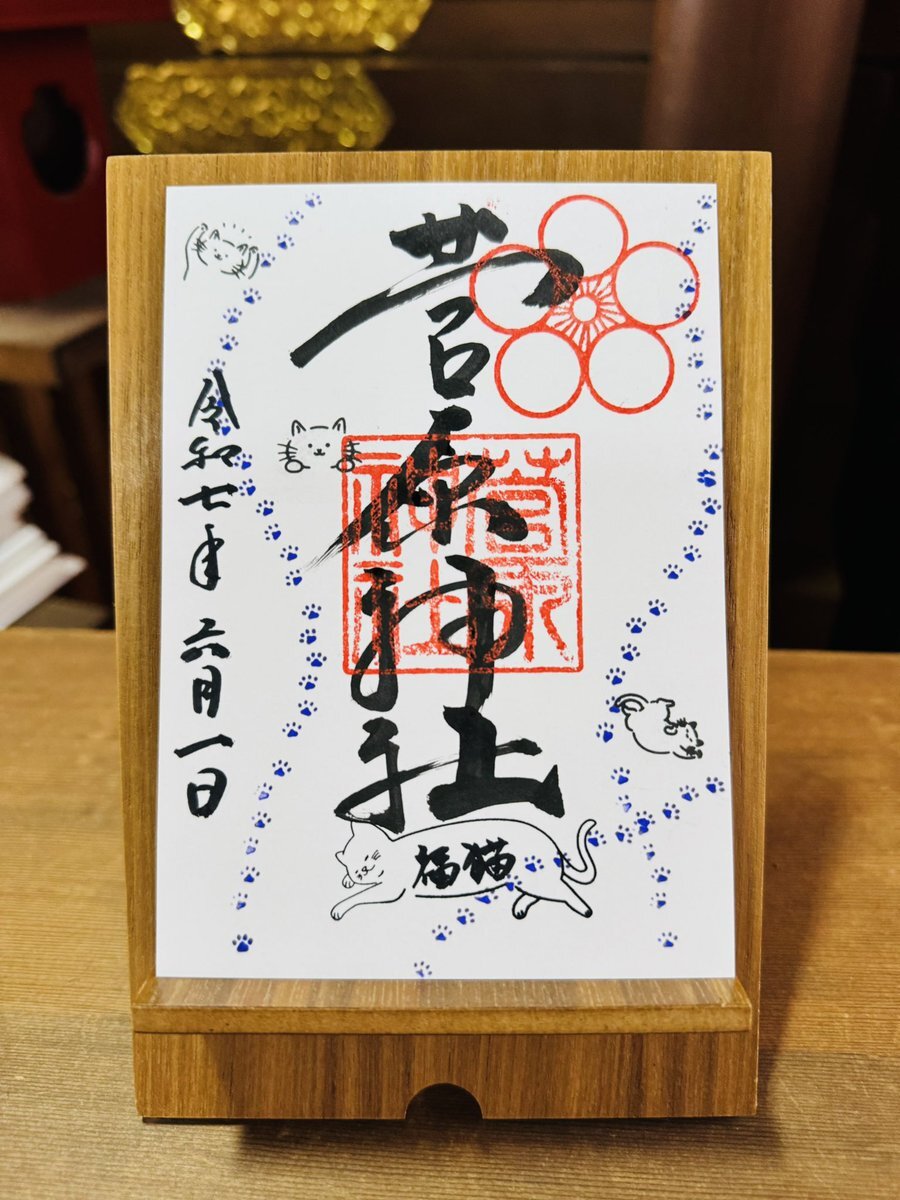 菅原神社
菅原
神社
福猫
令和七年 六月一日